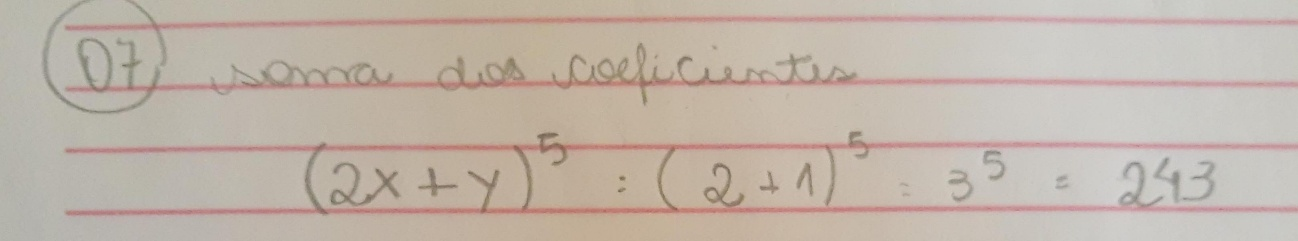 07 soma dos coeficientes
(2x+y)^5 : (2+1)^5 = 3^5 = 243